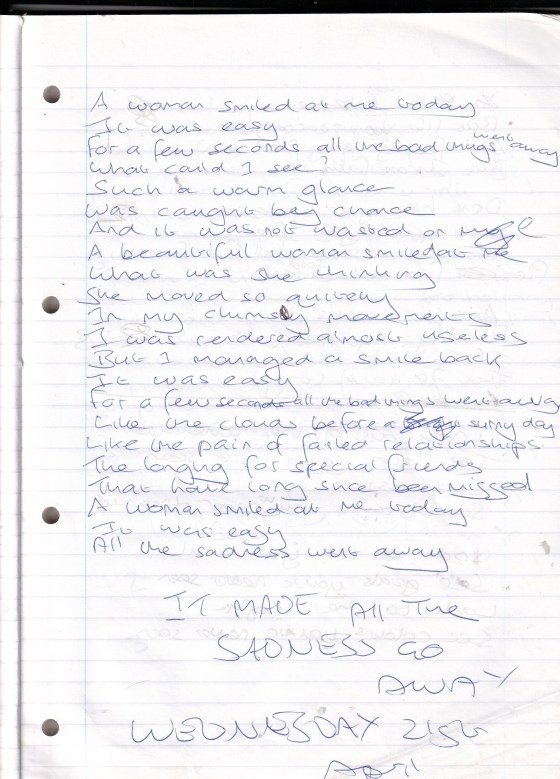 A woman smiled at me today
It was easy
For a few seconds all the bad things went away
What could I see?
Such a warm glance
Was caught by chance
And it was not wasted on me
A beautiful woman smiled at me
What was she thinking
She moved so quitely
In my clumsly movements
I was rendered almost useless
But I managed a smile back
It was easy
For a few seconds all the bad things went away
Like the clouds before a sunny day
Like the pain of failed relationships
The longing for special friends
That have long since been missed
A woman smiled at me today
It was easy
All the sadness went away
IT MADE All The
SADNESS GO
AWAY
WEDNESDAY 21st
April